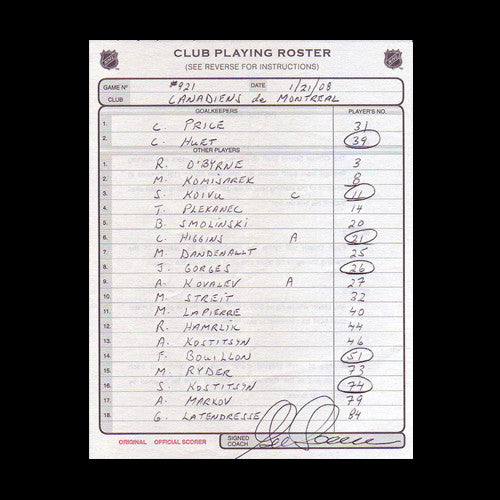 CLUB PLAYING ROSTER
(SEE REVERSE FOR INSTRUCTIONS)
GAME Nº #921 DATE 1/21/08
CLUB CANADIENS de MONTREAL
GOALKEEPERS PLAYER'S NO.
1. C. PRICE 31
2. C. HUET 39
OTHER PLAYERS
1. R. O'BYRNE 3
2. M. KOMISAREK 8
3. S. KOIVU C 11
4. T. PLEKANEC 14
5. B. SMOLINSKI 20
6. C. HIGGINS A 21
7. M. DANDENAULT 25
8. J. GORGES 26
9. A. KOVALEV A 27
10. M. STREIT 32
11. M. LAPIERRE 40
12. R. HAMRLIK 44
13. A. KOSTITSYN 46
14. F. BOUILLON 51
15. M. RYDER 73
16. S. KOSTITSYN 74
17. A. MARKOV 79
18. G. LATENDRESSE 84
ORIGINAL OFFICIAL SCORER SIGNED COACH